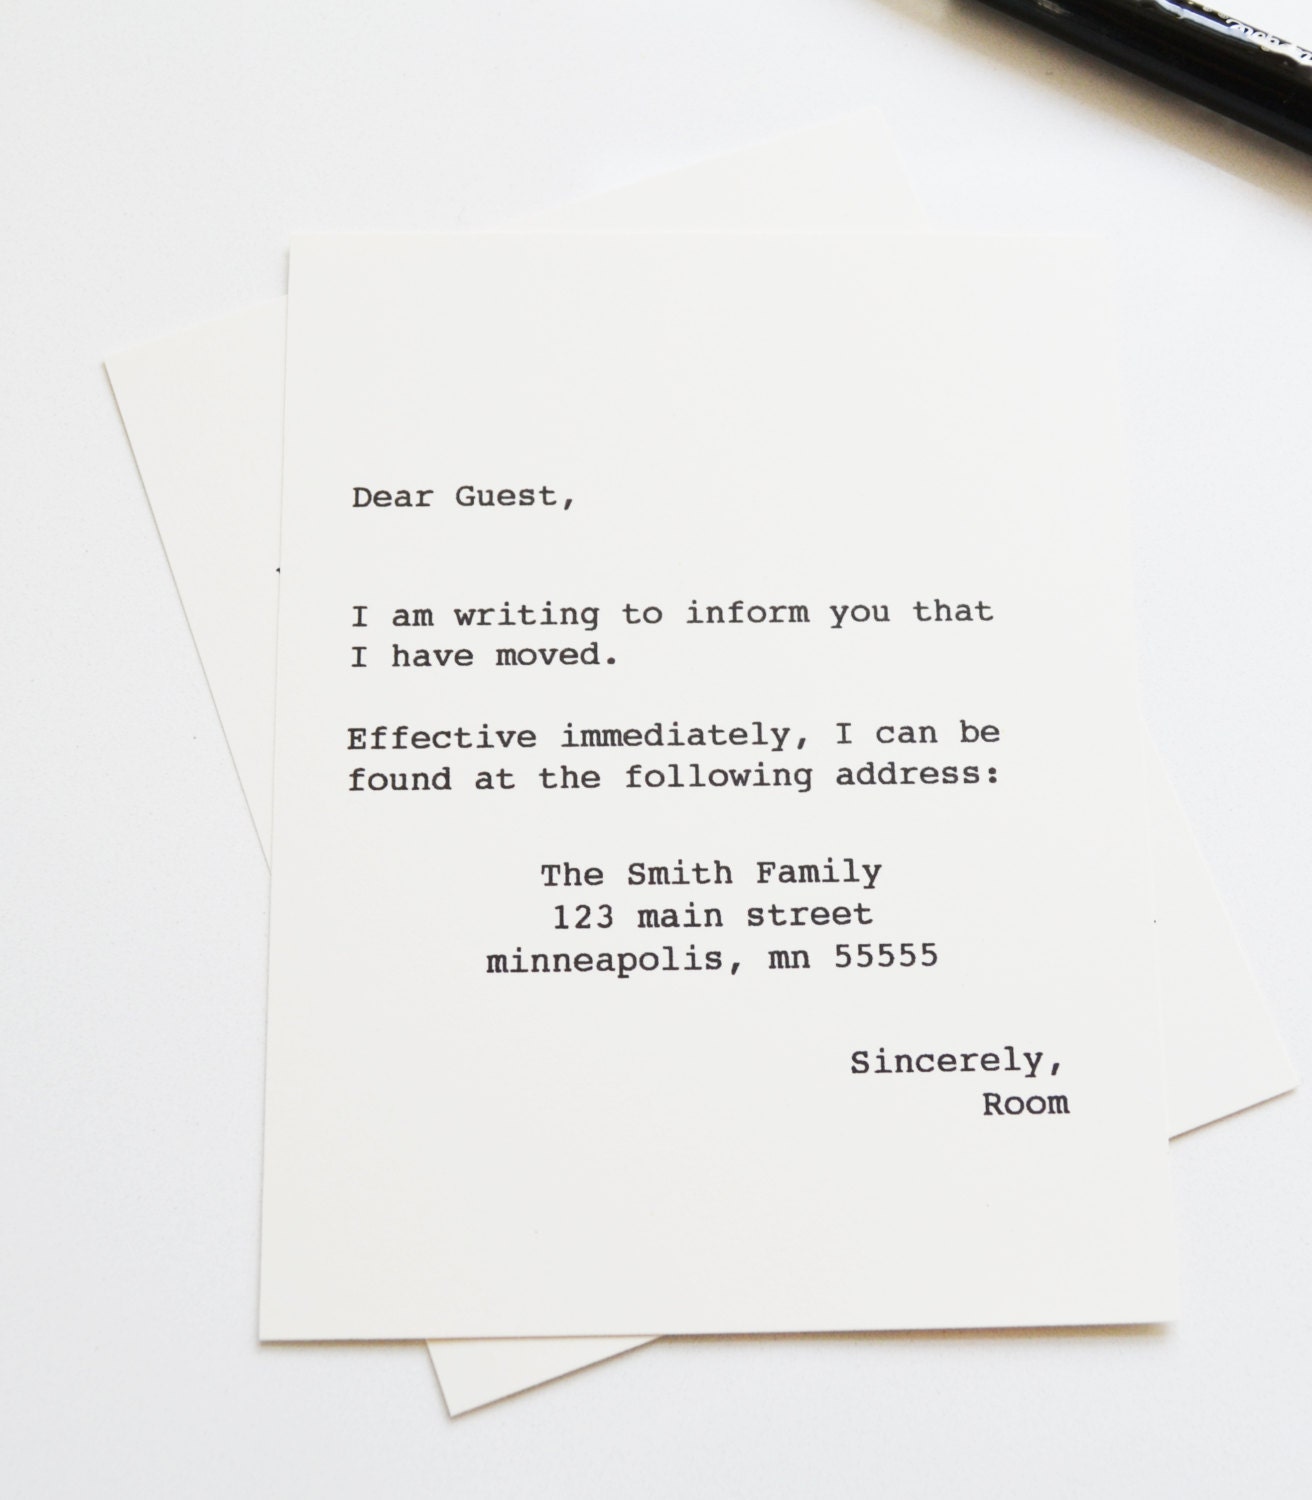 Dear Guest,
I am writing to inform you that
I have moved.
Effective immediately, I can be
found at the following address:
The Smith Family
123 main street
minneapolis, mn 55555
Sincerely,
Room